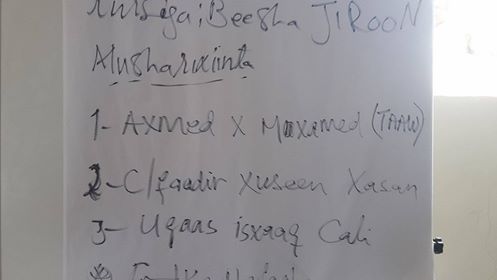 Beesha JIROON
Musharixiinta
1- AXMED X Maxamed (TAAW)
2- C/qaadir Xuseen Xasan
3- Ugaas isxaaq Cali